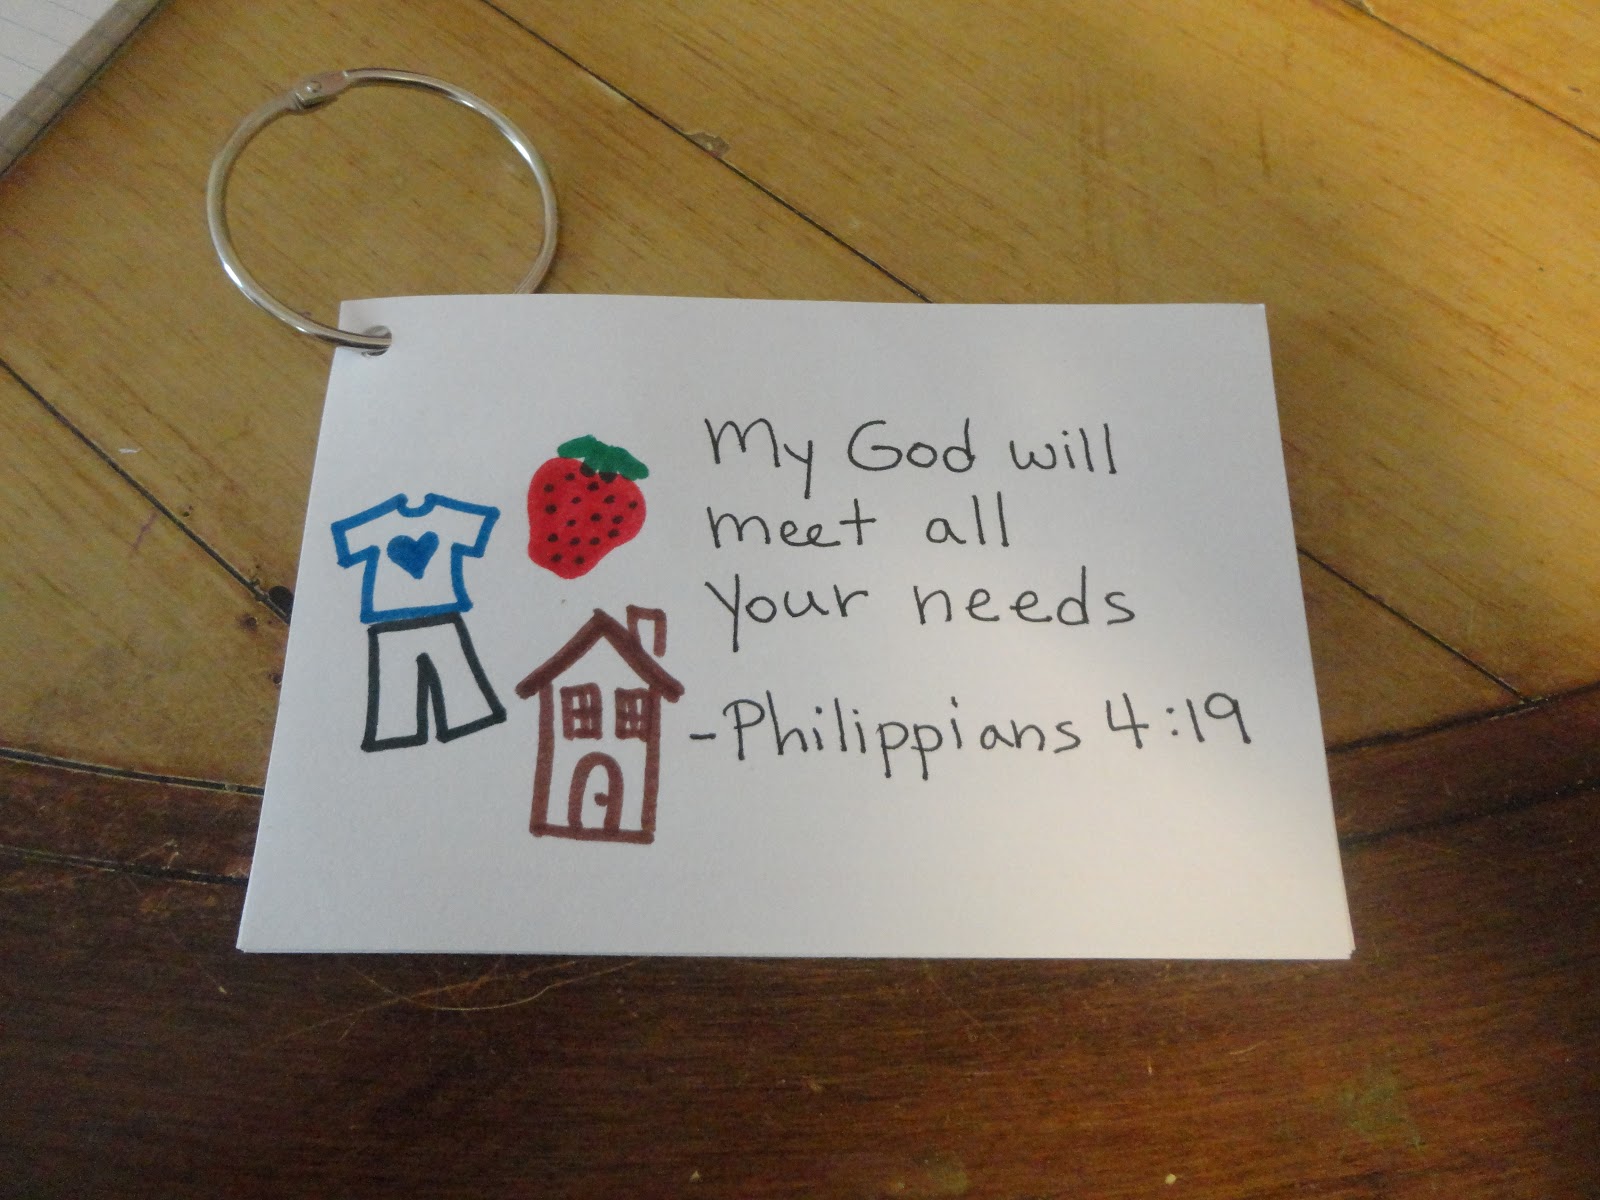 My God will
meet all
your needs
-Philippians 4:19